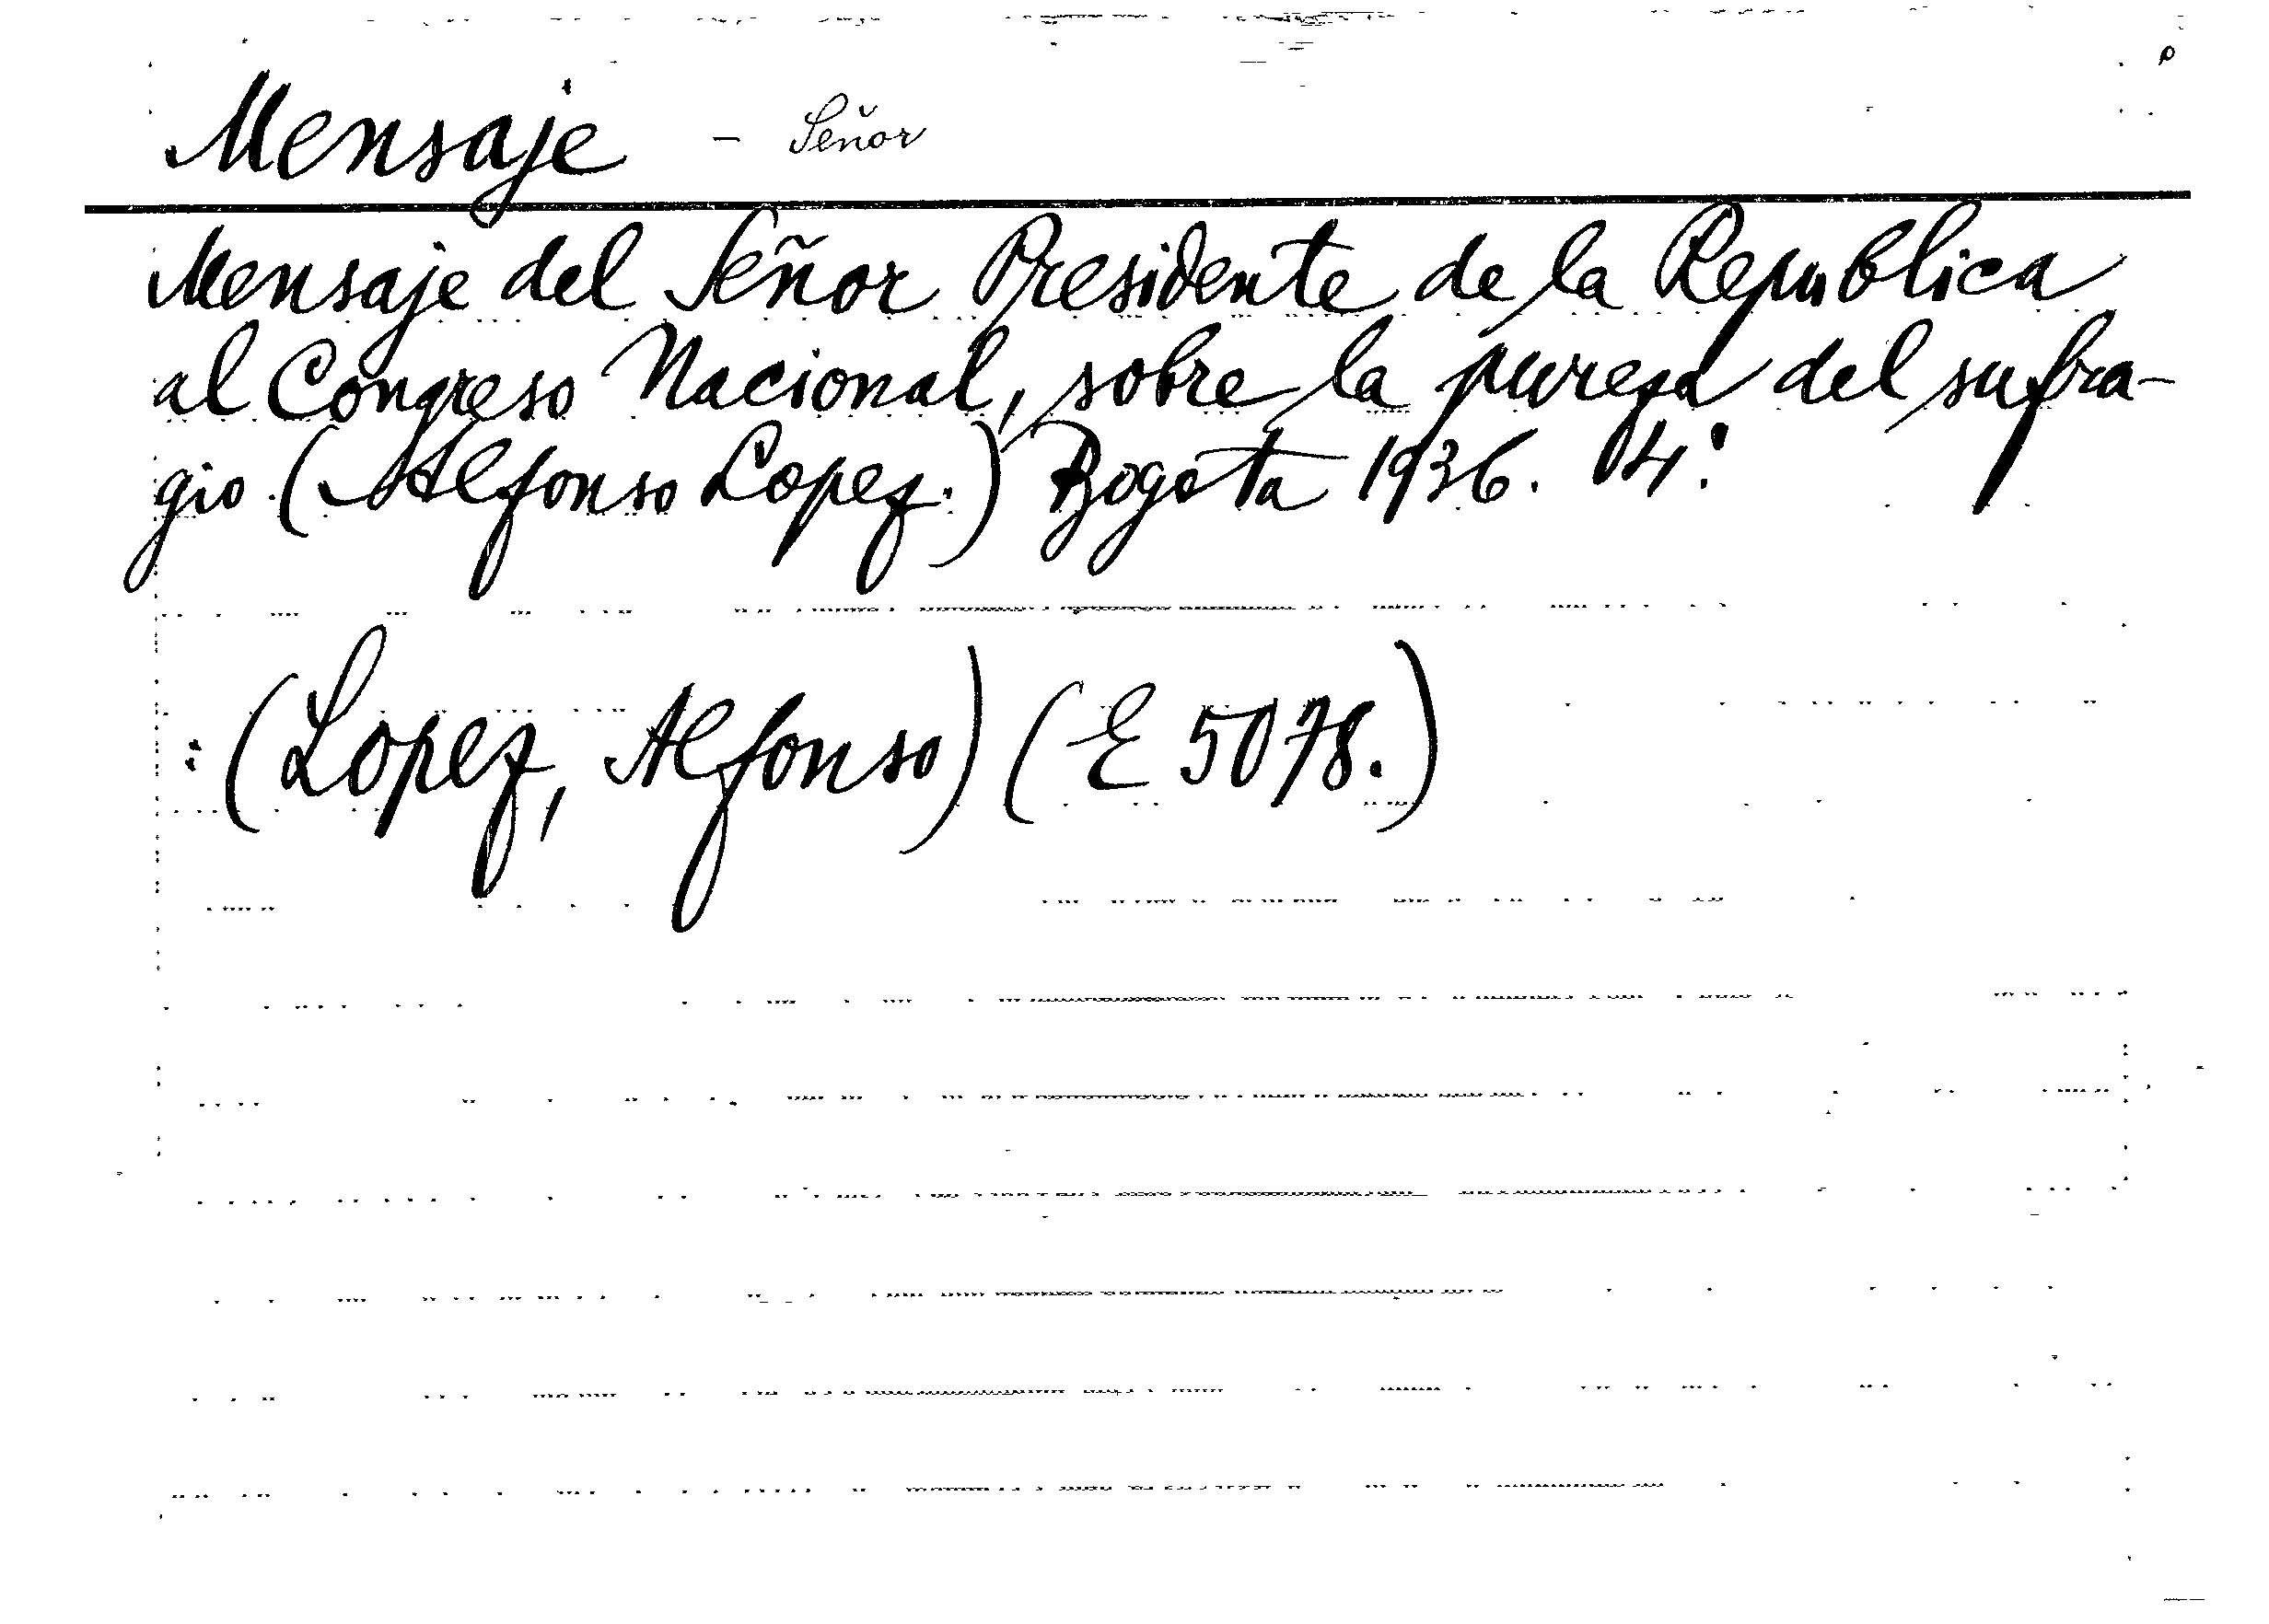 Mensaje - Señor
Mensaje del Señor Presidente de la Republica
al Congreso Nacional, sobre la pureza del sufra-
gio. (Alfonso Lopez.) Bogota 1936. 4º.
(Lopez, Alfonso) (E 5078.)